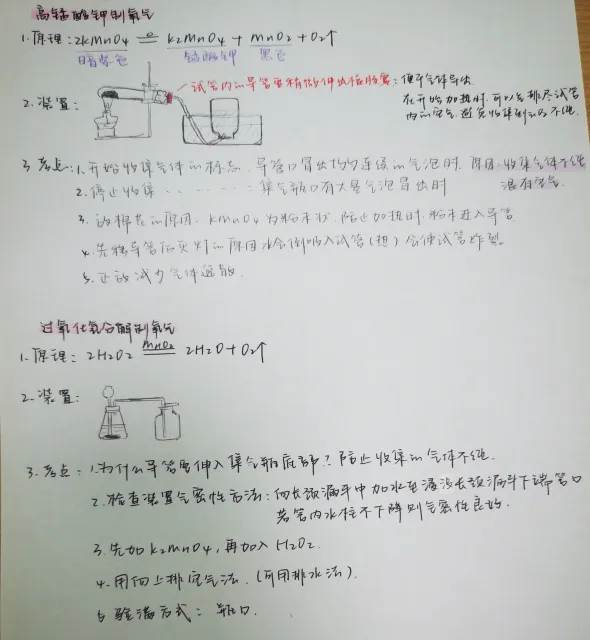 高锰酸钾制氧气
1.原理：2KMnO4 △ K2MnO4 + MnO2 + O2↑
暗紫色 锰酸钾 黑色
试管内的导管要稍微伸出橡胶塞：便于气体导出
2.装置：
在开始加热时,可以先排尽试管
内的空气,避免收集到的不纯.
3.考点：1.开始收集气体的标志.导管口冒出均匀连续的气泡时.原因:收集气体不纯
混有空气.
2.停止收集······集气瓶口有大量气泡冒出时
3.放棉花的原因.KMnO4为粉末状,防止加热时,粉末进入导管
4.先移导管后灭灯的原因水会倒吸入试管(热)会使试管炸裂.
5.正放减少气体逸散.
过氧化氢分解制氧气
1.原理：2H2O2 MnO2 2H2O+O2↑
2.装置：
3.考点：1.为什么导管要伸入集气瓶底部？防止收集的气体不纯.
2.检查装置气密性方法：向长颈漏斗中加水至浸没长颈漏斗下端管口
若管内水柱不下降则气密性良好.
3.先加K2MnO4,再加入H2O2.
4.用向上排空气法.(可用排水法).
5.验满方式：瓶口.